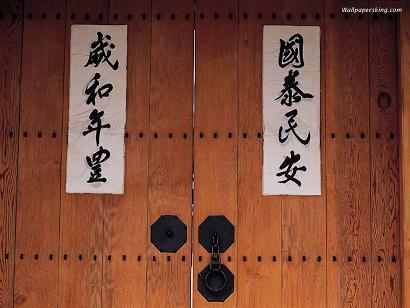 Wallpapersking.com
國泰民安
歲和年豊